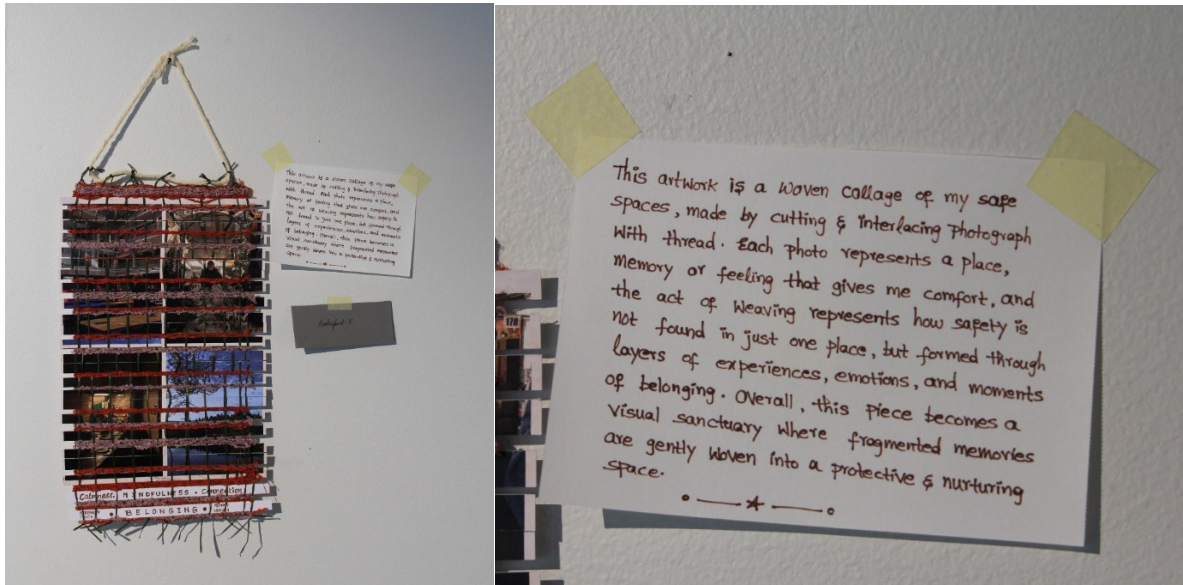 Calmness. MINDFULNESS • Connection
• BELONGING •
This artwork is a woven collage of my safe
spaces, made by cutting & interlacing photograph
with thread. Each photo represents a place,
memory or feeling that gives me comfort, and
the act of weaving represents how safety is
not found in just one place, but formed through
layers of experiences, emotions, and moments
of belonging. Overall, this piece becomes a
visual sanctuary where fragmented memories
are gently woven into a protective & nurturing
space.
This artwork is a woven collage of my safe
spaces, made by cutting & interlacing photograph
with thread. Each photo represents a place,
memory or feeling that gives me comfort, and
the act of weaving represents how safety is
not found in just one place, but formed through
layers of experiences, emotions, and moments
of belonging. Overall, this piece becomes a
visual sanctuary where fragmented memories
are gently woven into a protective & nurturing
space.